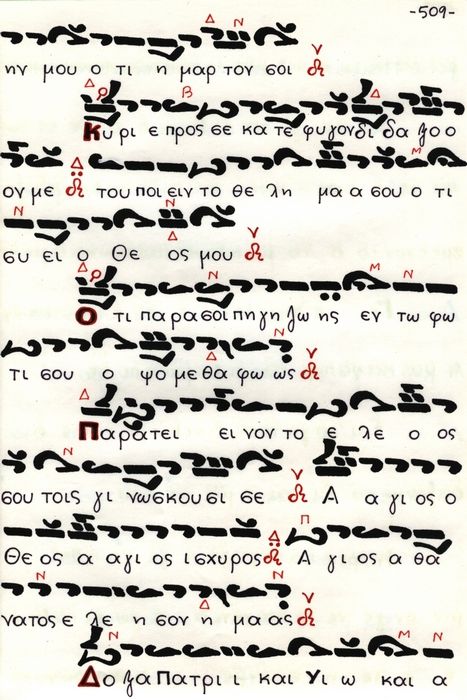 -509-
ην μου ο τι η μαρ τον σοι
Κυ ρι ε προς σε κα τε φυ γον δι δα ξο ο
ον με του ποι ειν το θε λη μα α σου ο τι
συ ει ο Θε ος μου
Ο τι παρα σοι πη γη ζω ης εν τω φω
τι σου ο ψο με θα φω ως
Παρατει ει νον το ε λε ο ος
σου τοις γι νωσκου σι σε Α α γι ος ο
Θε ος α αγι ος ισχυρος Α γι ος α θα
νατος ε λε η σον η μα ας
Δο ξα Πατρι ι και Υι ω και α